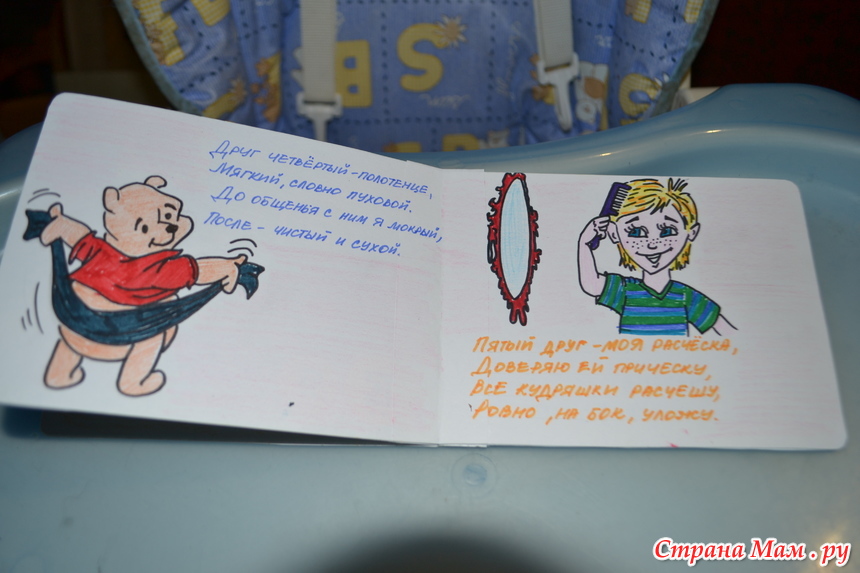 Друг четвёртый-полотенце,
Мягкий, словно пуховой.
До общенья с ним я мокрый,
После - чистый и сухой.
Пятый друг - моя расчёска,
Доверяю ей прическу,
Все кудряшки расчешу,
Ровно, на бок, уложу.
S
B
Страна Мам.ру